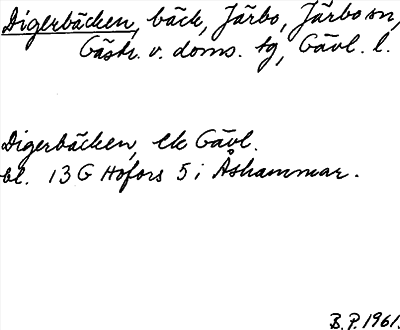 Digerbäcken, bäck, Järbo, Järbo sn,
Gästr. v. doms. tg, Gävl. l.
Digerbäcken, ek Gävl.
bl. 13 G Hofors 5 i Åshammar.
B.P. 1961.